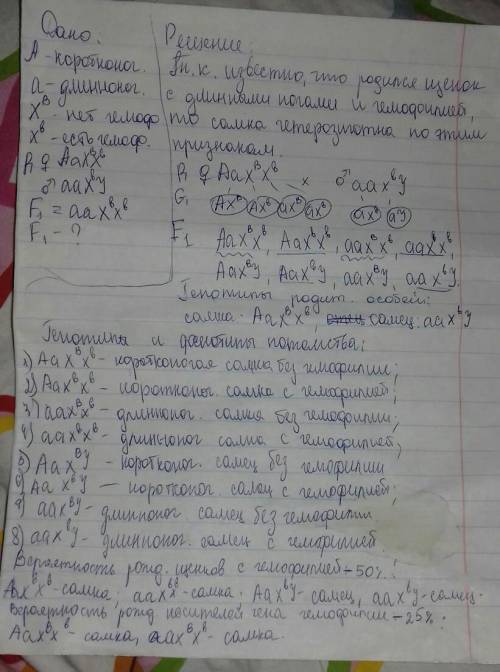 Дано:
А - коротконог.
а - длинноног.
Xᴮ - нет гемоф.
Xᵇ - есть гемоф.
P₁ ♀ AaXᴮXᵇ
♂ aaXᵇY
F₁ = aaXᵇXᵇ
F₁ - ?
Решение:
Т.к. известно, что родился щенок
с длинными ногами и гемофилией,
то самка гетерозиготна по этим
признакам.
P₁ ♀ AaXᴮXᵇ x ♂ aaXᵇY
G₁ AXᴮ AXᵇ aXᴮ aXᵇ aXᵇ aY
F₁ AaXᴮXᵇ, AaXᵇXᵇ, aaXᴮXᵇ, aaXᵇXᵇ,
AaXᴮY, AaXᵇY, aaXᴮY, aaXᵇY.
Генотипы родит. особей:
самка: AaXᴮXᵇ, самец: aaXᵇY
Генотипы и фенотипы потомства:
1) AaXᴮXᵇ - коротконогая самка без гемофилии;
2) AaXᵇXᵇ - коротконог. самка с гемофилией;
3) aaXᴮXᵇ - длинноног. самка без гемофилии;
4) aaXᵇXᵇ - длинноног. самка с гемофилией;
5) AaXᴮY - коротконог. самец без гемофилии
6) AaXᵇY - коротконог. самец с гемофилией;
7) aaXᴮY - длинноног. самец без гемофилии
8) aaXᵇY - длинноног. самец с гемофилией.
Вероятность рожд. щенков с гемофилией - 50%:
AaXᵇXᵇ - самка; aaXᵇXᵇ - самка; AaXᵇY - самец, aaXᵇY - самец.
Вероятность рожд носителей гена гемофилии - 25%:
AaXᴮXᵇ - самка, aaXᴮXᵇ - самка.